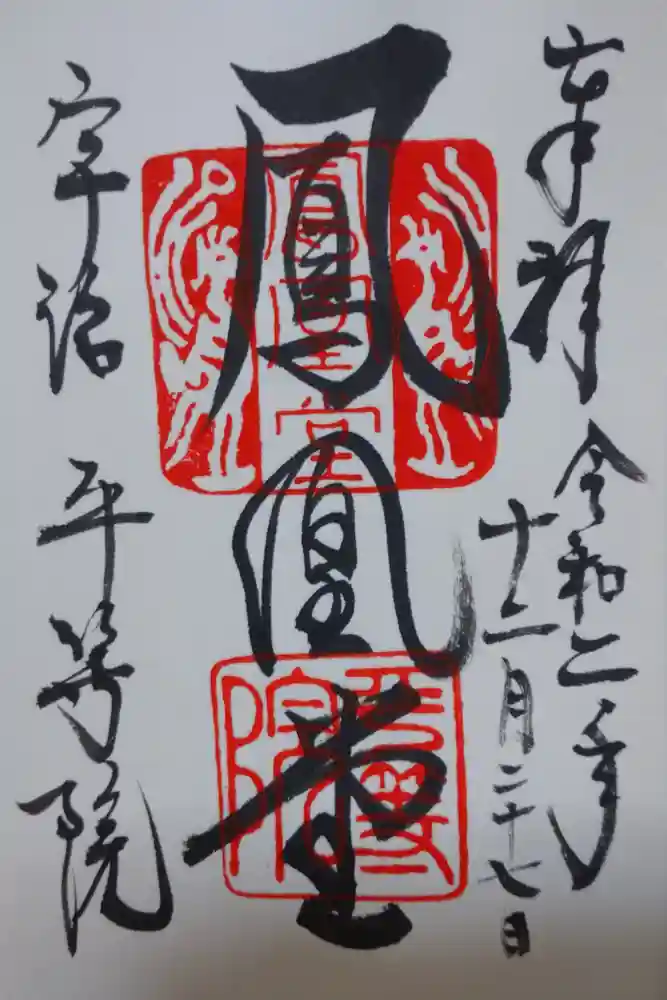 奉拝
令和二年
十二月二十七日
鳳凰堂
鳳凰堂
平等院
宇治 平等院